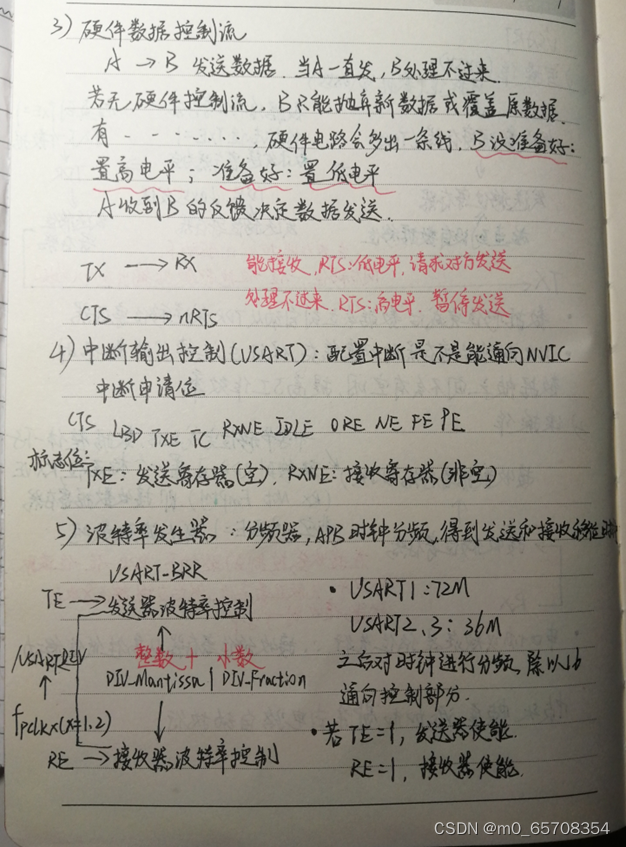 3) 硬件数据控制流
A → B 发送数据. 当A一直发, B处理不过来.
若无硬件控制流, B只能抛弃新数据或覆盖原数据.
有 - - - - - - -, 硬件电路会多出一条线, B没准备好:
置高电平; 准备好: 置低电平
A收到B的反馈决定数据发送.
TX → RX 能接收, RTS: 低电平, 请求对方发送
CTS → nRTS 处理不过来. RTS: 高电平. 暂停发送
4) 中断输出控制(USART): 配置中断是不是能通向NVIC
中断申请位
CTS LBD TXE TC RXNE IDLE ORE NE FE PE
标志位:
TXE: 发送寄存器(空), RXNE: 接收寄存器(非空)
5) 波特率发生器: 分频器, APB时钟分频, 得到发送和接收移位时
USART-BRR
TE → 发送器波特率控制
整数 + 小数
DIV_Mantissa | DIV_Fraction
/USARTDIV
fPCLKx(x=1.2)
RE → 接收器波特率控制
• USART1: 72M
USART2、3: 36M
之后对时钟进行分频, 除以16
通向控制部分.
• 若TE=1, 发送器使能.
RE=1, 接收器使能.
CSDN @m0_65708354